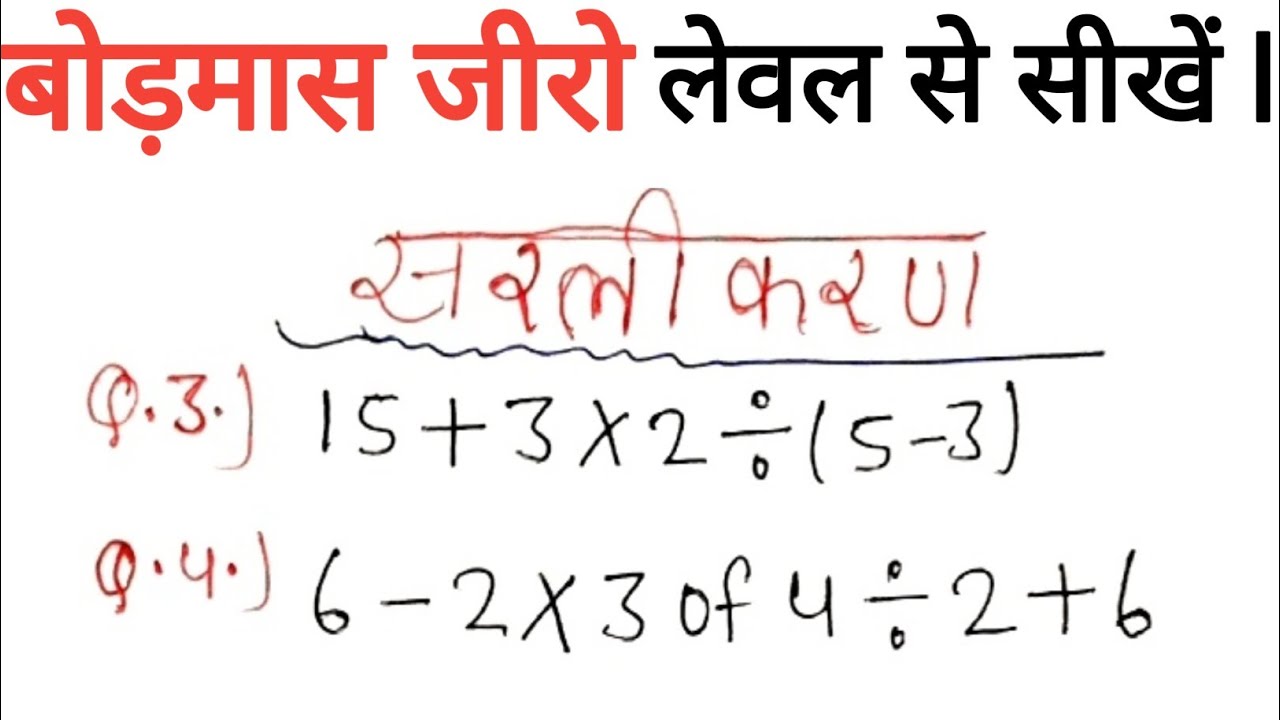 बोड़मास जीरो लेवल से सीखें ।
सरलीकरण
Q.3.) 15+3×2÷(5-3)
Q.4.) 6-2×3 of 4÷2+6